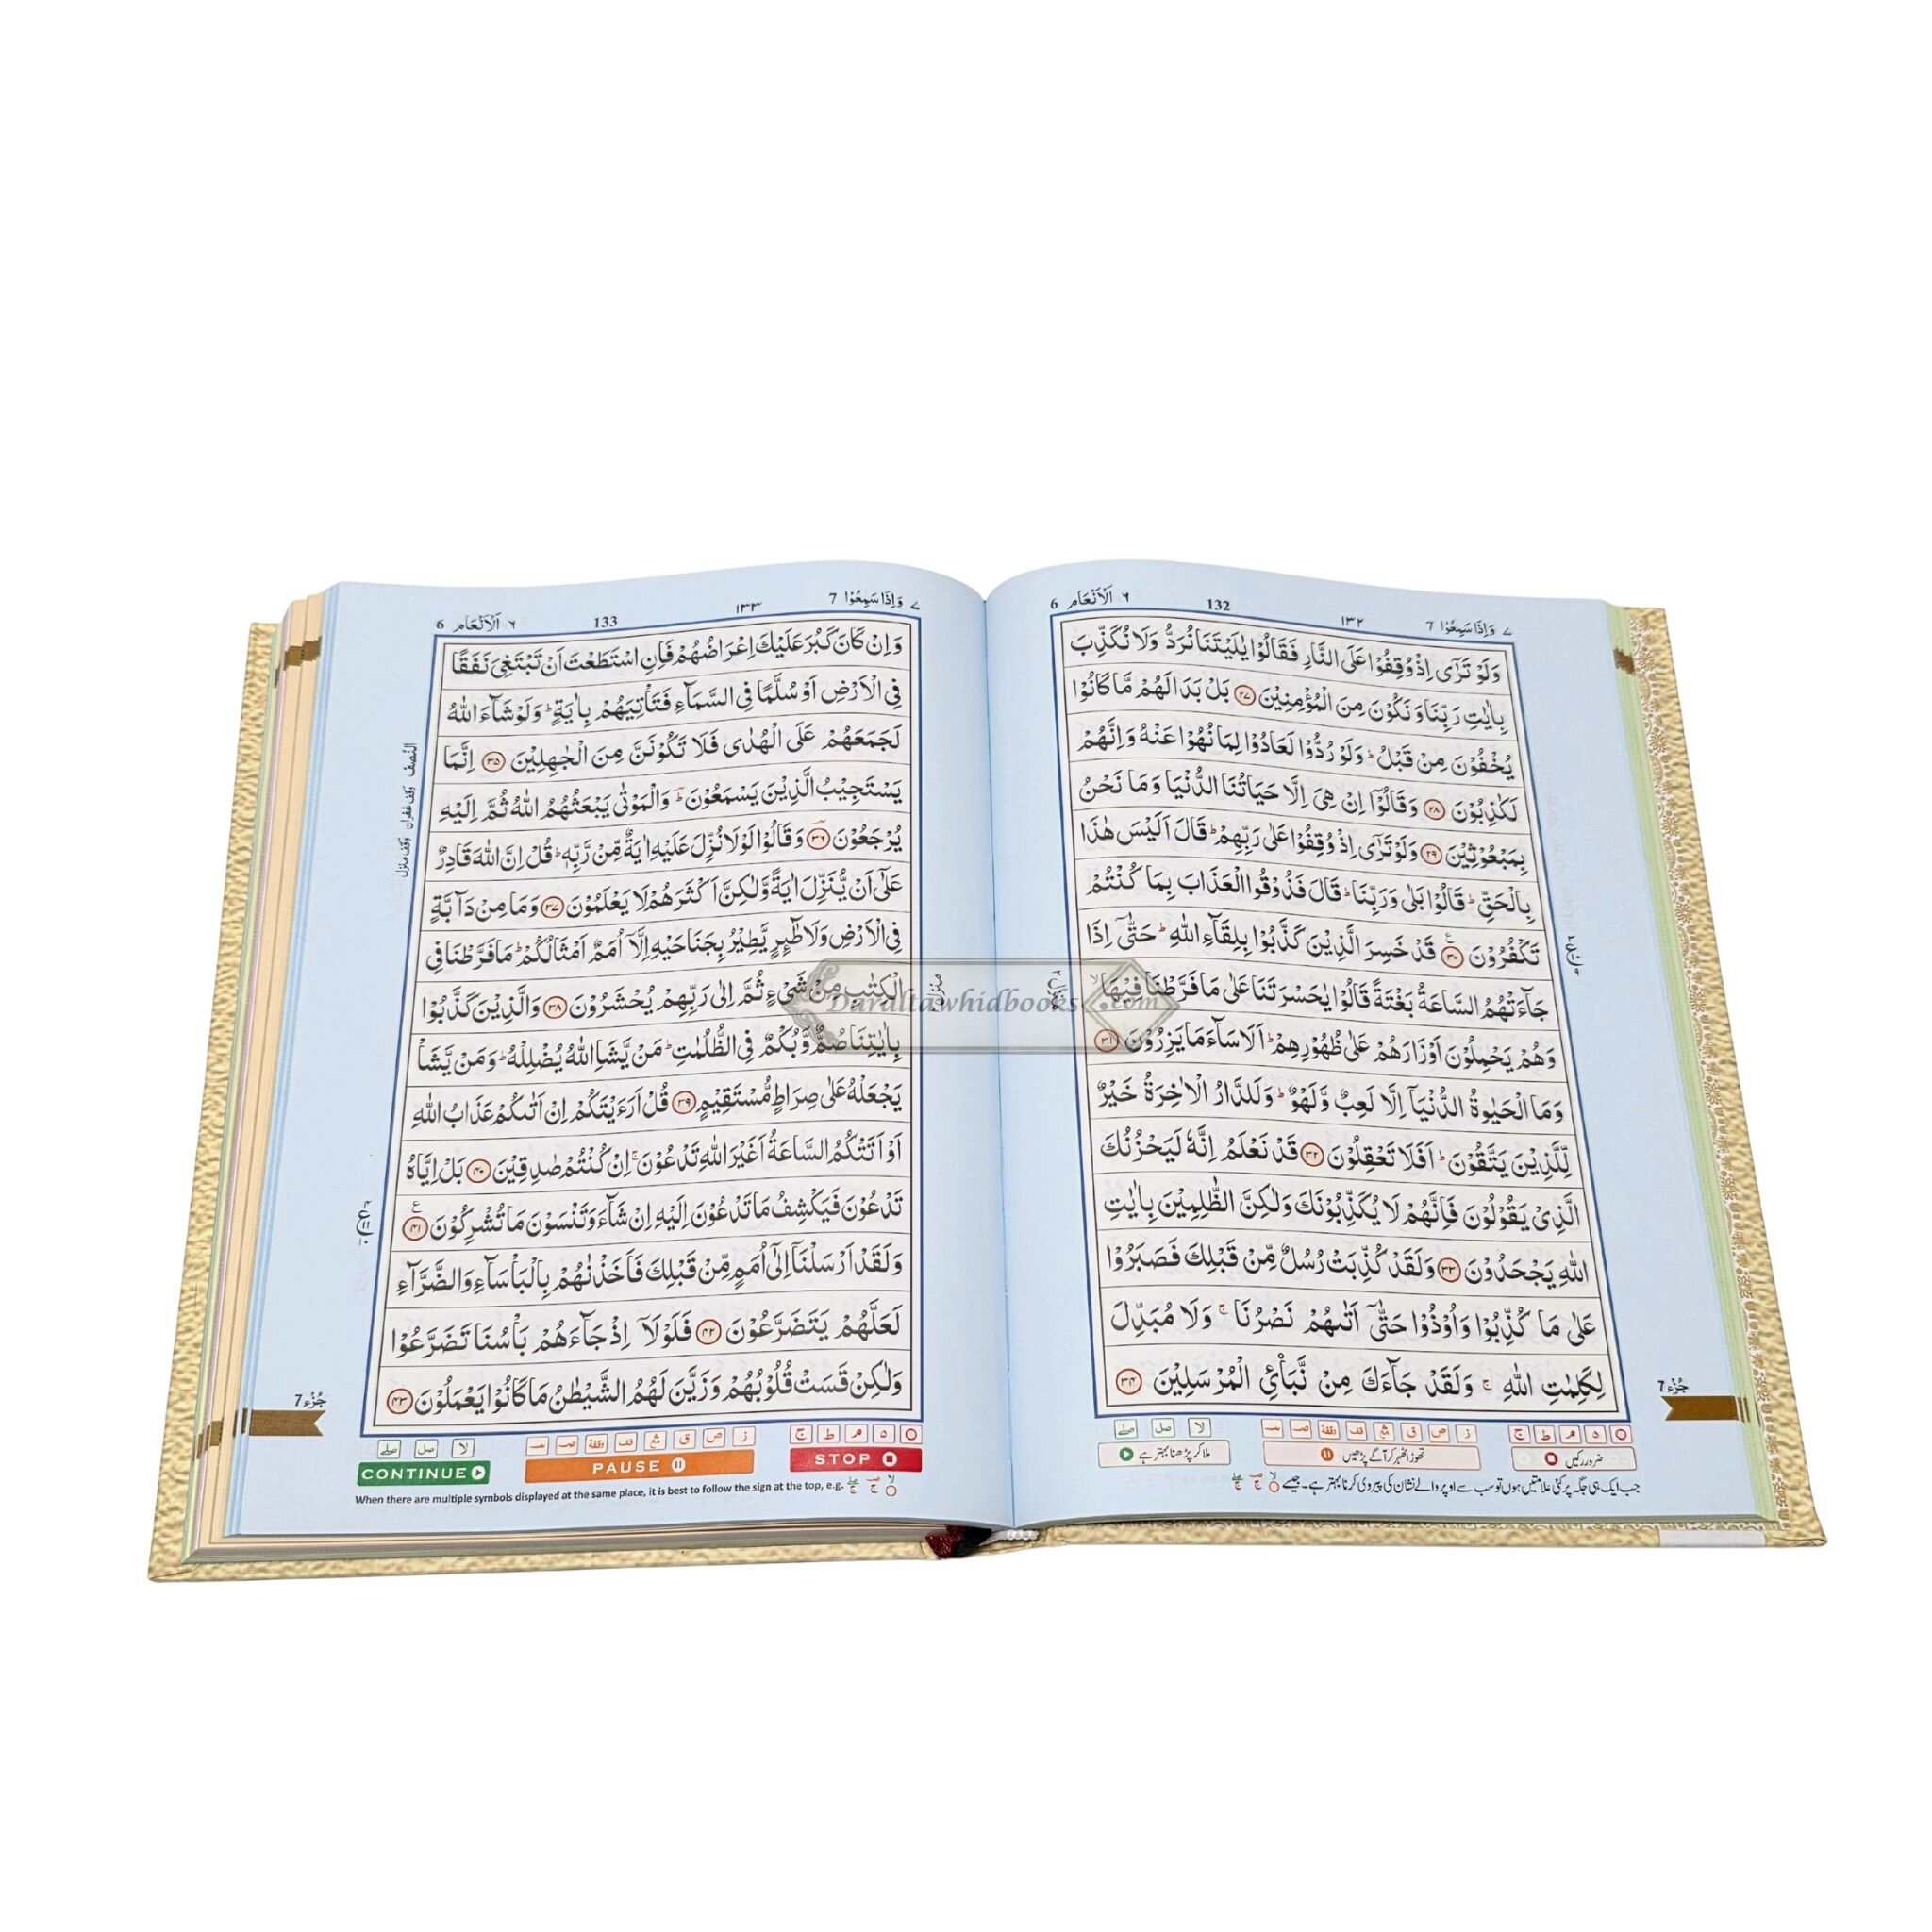 ٧ وَاِذَا سَمِعُوْا 7
١٣٢
132
٦ اَلْاَنْعَام 6
وَلَوْ تَرٰٓى اِذْ وُقِفُوْا عَلَى النَّارِ فَقَالُوْا يٰلَيْتَنَا نُرَدُّ وَلَا نُكَذِّبَ
بِاٰيٰتِ رَبِّنَا وَنَكُوْنَ مِنَ الْمُؤْمِنِيْنَ ٢٧ بَلْ بَدَا لَهُمْ مَّا كَانُوْا
يُخْفُوْنَ مِنْ قَبْلُ ؕ وَلَوْ رُدُّوْا لَعَادُوْا لِمَا نُهُوْا عَنْهُ وَاِنَّهُمْ
لَكٰذِبُوْنَ ٢٨ وَقَالُوْٓا اِنْ هِىَ اِلَّا حَيَاتُنَا الدُّنْيَا وَمَا نَحْنُ
بِمَبْعُوْثِيْنَ ٢٩ وَلَوْ تَرٰٓى اِذْ وُقِفُوْا عَلٰى رَبِّهِمْ ؕ قَالَ اَلَيْسَ هٰذَا
بِالْحَقِّ ؕ قَالُوْا بَلٰى وَرَبِّنَا ؕ قَالَ فَذُوْقُوا الْعَذَابَ بِمَا كُنْتُمْ
تَكْفُرُوْنَ ٣٠ قَدْ خَسِرَ الَّذِيْنَ كَذَّبُوْا بِلِقَآءِ اللّٰهِ ؕ حَتّٰٓى اِذَا
جَآءَتْهُمُ السَّاعَةُ بَغْتَةً قَالُوْا يٰحَسْرَتَنَا عَلٰى مَا فَرَّطْنَا فِيْهَا ۙ
وَهُمْ يَحْمِلُوْنَ اَوْزَارَهُمْ عَلٰى ظُهُوْرِهِمْ ؕ اَلَا سَآءَ مَا يَزِرُوْنَ ٣١
وَمَا الْحَيٰوةُ الدُّنْيَآ اِلَّا لَعِبٌ وَّلَهْوٌ ؕ وَلَلدَّارُ الْاٰخِرَةُ خَيْرٌ
لِّلَّذِيْنَ يَتَّقُوْنَ ؕ اَفَلَا تَعْقِلُوْنَ ٣٢ قَدْ نَعْلَمُ اِنَّهٗ لَيَحْزُنُكَ
الَّذِىْ يَقُوْلُوْنَ فَاِنَّهُمْ لَا يُكَذِّبُوْنَكَ وَلٰكِنَّ الظّٰلِمِيْنَ بِاٰيٰتِ
اللّٰهِ يَجْحَدُوْنَ ٣٣ وَلَقَدْ كُذِّبَتْ رُسُلٌ مِّنْ قَبْلِكَ فَصَبَرُوْا
عَلٰى مَا كُذِّبُوْا وَاُوْذُوْا حَتّٰٓى اَتٰىهُمْ نَصْرُنَا ۚ وَلَا مُبَدِّلَ
لِكَلِمٰتِ اللّٰهِ ۚ وَلَقَدْ جَآءَكَ مِنْ نَّبَاِى الْمُرْسَلِيْنَ ٣٤
جُزْء 7
ضرور رکیں
تھوڑا ٹھہر کر آگے پڑھیں
ملا کر پڑھنا بہتر ہے
جب ایک ہی جگہ پر کئی علامتیں ہوں تو سب سے اوپر والے نشان کی پیروی کرنا بہتر ہے۔ جیسے
٧ وَاِذَا سَمِعُوْا 7
١٣٣
133
٦ اَلْاَنْعَام 6
وَاِنْ كَانَ كَبُرَ عَلَيْكَ اِعْرَاضُهُمْ فَاِنِ اسْتَطَعْتَ اَنْ تَبْتَغِىَ نَفَقًا
فِى الْاَرْضِ اَوْ سُلَّمًا فِى السَّمَآءِ فَتَاْتِيَهُمْ بِاٰيَةٍ ؕ وَلَوْ شَآءَ اللّٰهُ
لَجَمَعَهُمْ عَلَى الْهُدٰى فَلَا تَكُوْنَنَّ مِنَ الْجٰهِلِيْنَ ٣٥ اِنَّمَا
يَسْتَجِيْبُ الَّذِيْنَ يَسْمَعُوْنَ ؕ وَالْمَوْتٰى يَبْعَثُهُمُ اللّٰهُ ثُمَّ اِلَيْهِ
يُرْجَعُوْنَ ٣٦ وَقَالُوْا لَوْلَا نُزِّلَ عَلَيْهِ اٰيَةٌ مِّنْ رَّبِّهٖ ؕ قُلْ اِنَّ اللّٰهَ قَادِرٌ
عَلٰٓى اَنْ يُّنَزِّلَ اٰيَةً وَّلٰكِنَّ اَكْثَرَهُمْ لَا يَعْلَمُوْنَ ٣٧ وَمَا مِنْ دَآبَّةٍ
فِى الْاَرْضِ وَلَا طٰٓئِرٍ يَّطِيْرُ بِجَنَاحَيْهِ اِلَّآ اُمَمٌ اَمْثَالُكُمْ ؕ مَا فَرَّطْنَا فِى
الْكِتٰبِ مِنْ شَىْءٍ ثُمَّ اِلٰى رَبِّهِمْ يُحْشَرُوْنَ ٣٨ وَالَّذِيْنَ كَذَّبُوْا
بِاٰيٰتِنَا صُمٌّ وَّبُكْمٌ فِى الظُّلُمٰتِ ؕ مَنْ يَّشَاِ اللّٰهُ يُضْلِلْهُ ؕ وَمَنْ يَّشَاْ
يَجْعَلْهُ عَلٰى صِرَاطٍ مُّسْتَقِيْمٍ ٣٩ قُلْ اَرَءَيْتَكُمْ اِنْ اَتٰىكُمْ عَذَابُ اللّٰهِ
اَوْ اَتَتْكُمُ السَّاعَةُ اَغَيْرَ اللّٰهِ تَدْعُوْنَ ۚ اِنْ كُنْتُمْ صٰدِقِيْنَ ٤٠ بَلْ اِيَّاهُ
تَدْعُوْنَ فَيَكْشِفُ مَا تَدْعُوْنَ اِلَيْهِ اِنْ شَآءَ وَتَنْسَوْنَ مَا تُشْرِكُوْنَ ٤١
وَلَقَدْ اَرْسَلْنَآ اِلٰٓى اُمَمٍ مِّنْ قَبْلِكَ فَاَخَذْنٰهُمْ بِالْبَاْسَآءِ وَالضَّرَّآءِ
لَعَلَّهُمْ يَتَضَرَّعُوْنَ ٤٢ فَلَوْلَآ اِذْ جَآءَهُمْ بَاْسُنَا تَضَرَّعُوْا
وَلٰكِنْ قَسَتْ قُلُوْبُهُمْ وَزَيَّنَ لَهُمُ الشَّيْطٰنُ مَا كَانُوْا يَعْمَلُوْنَ ٤٣
جُزْء 7
CONTINUE
PAUSE
STOP
When there are multiple symbols displayed at the same place, it is best to follow the sign at the top, e.g.
Daraltawhidbooks.com